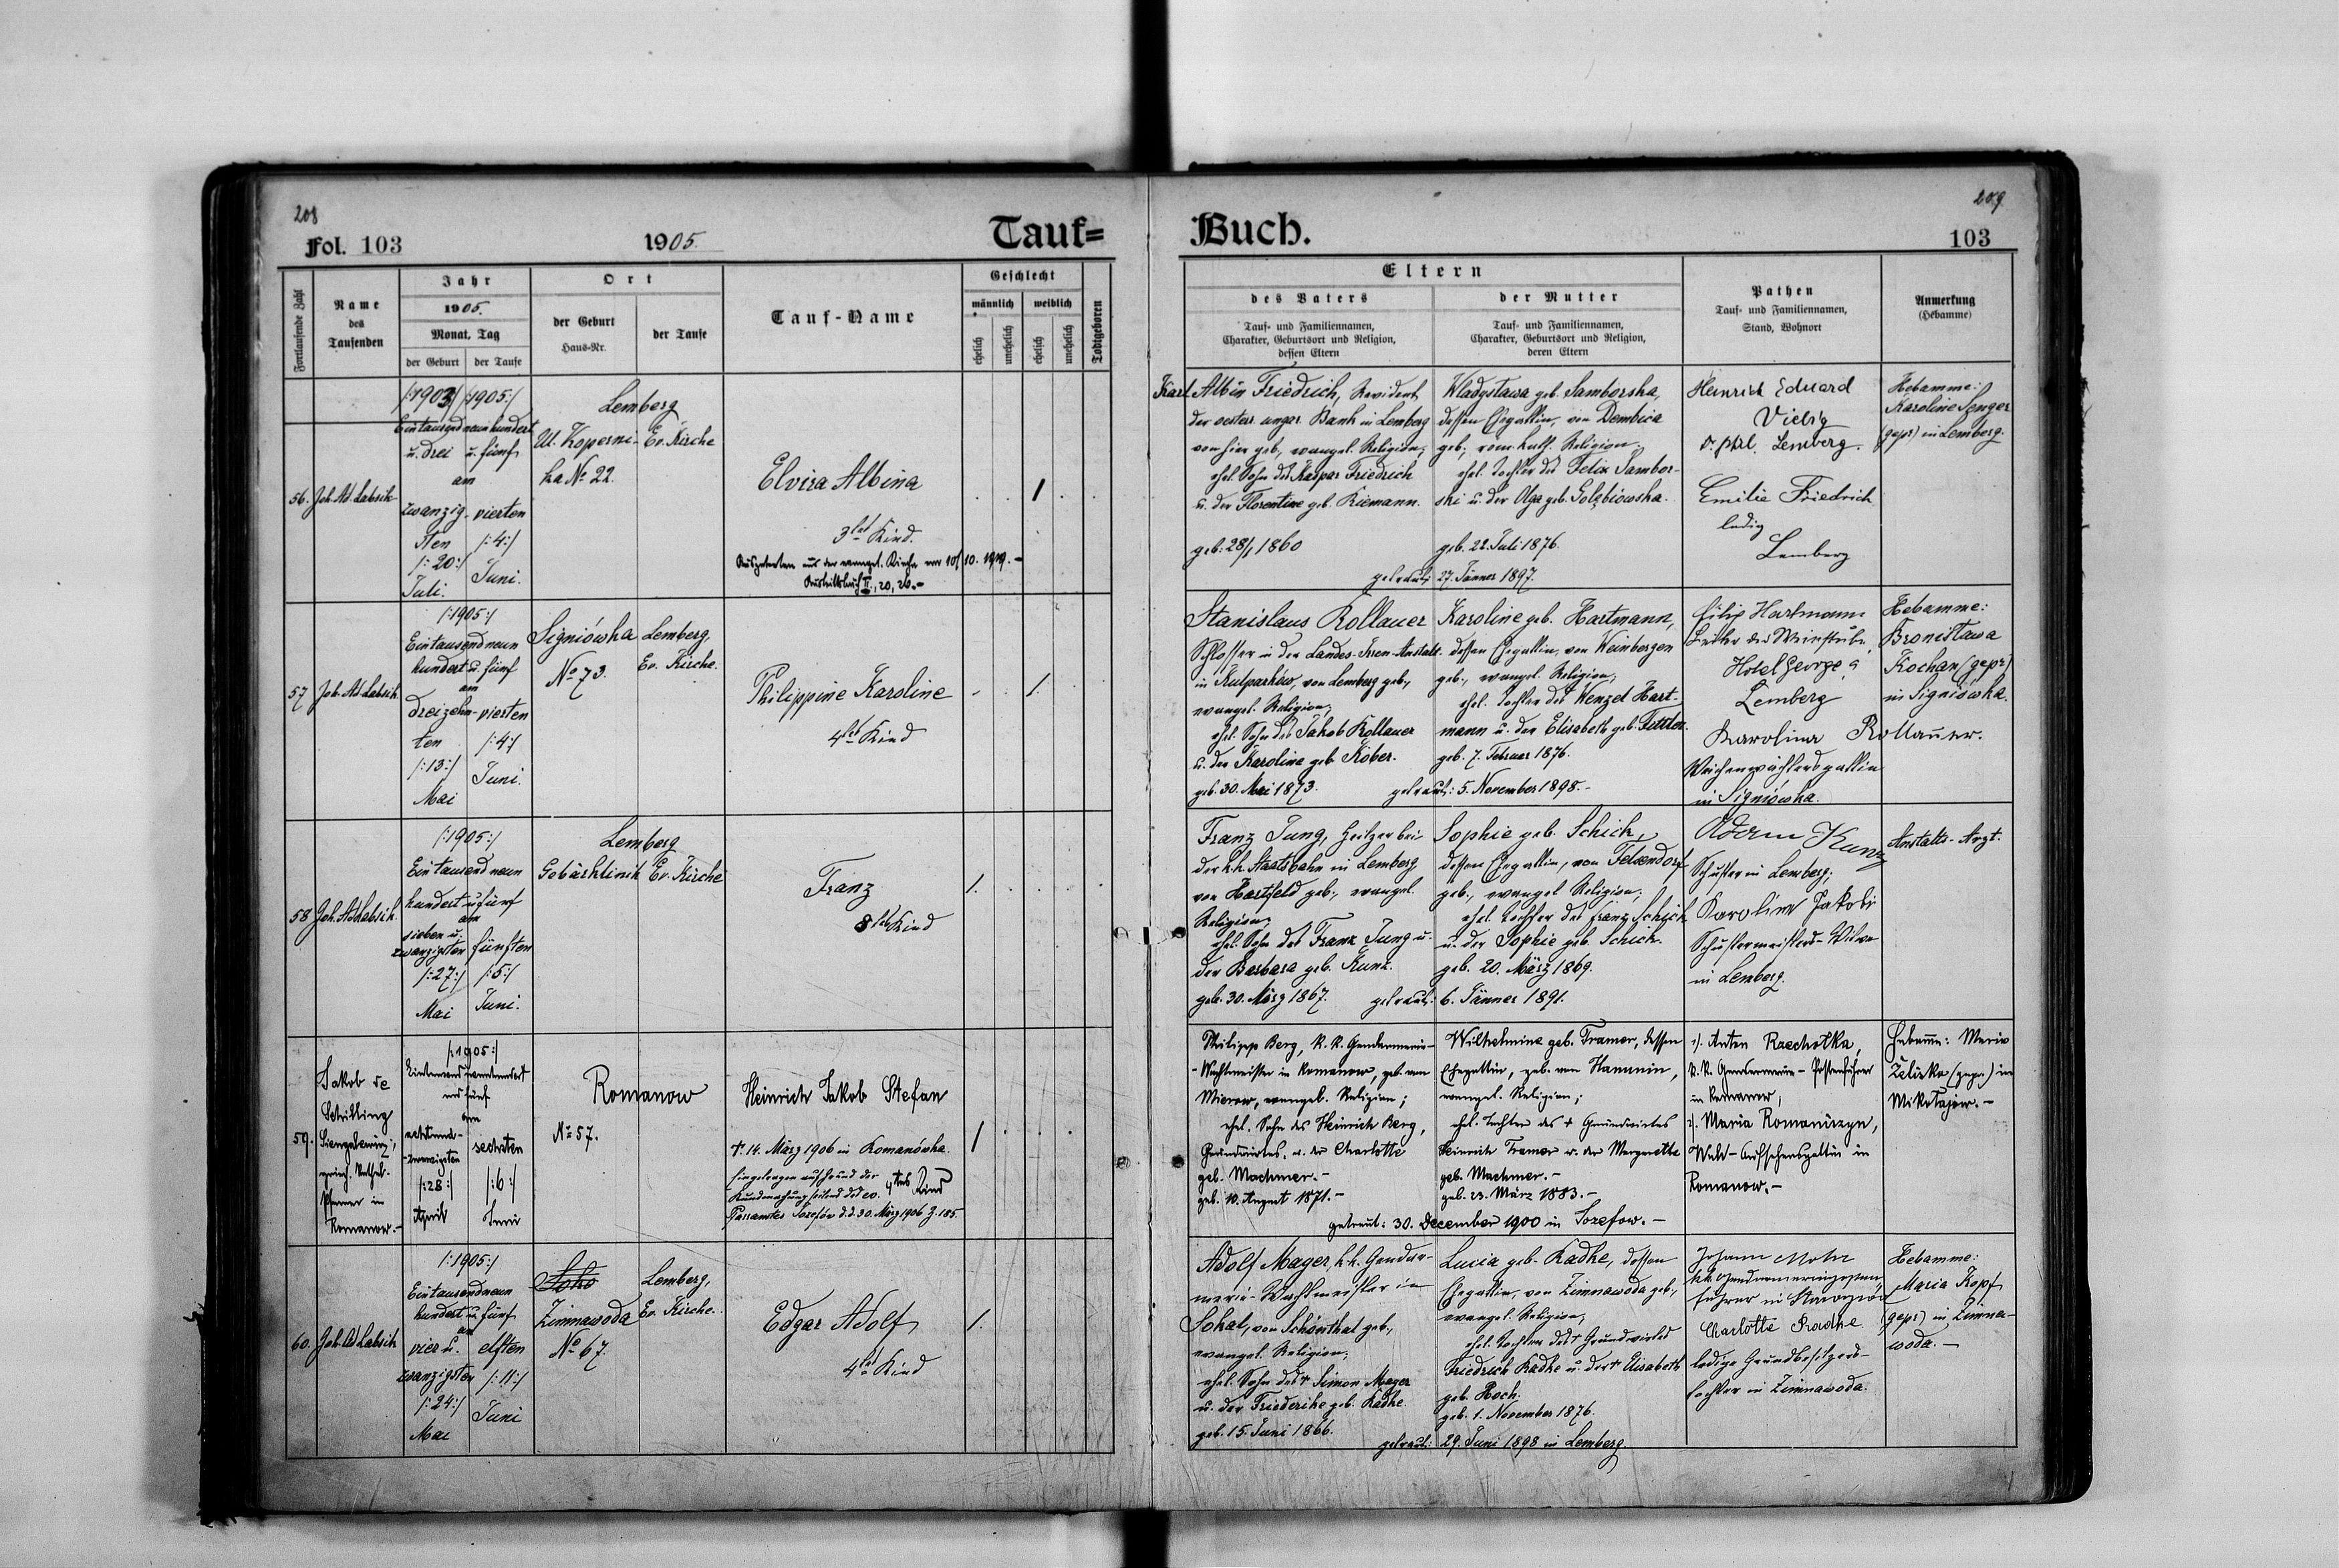 208
Fol. 103
1905.
Tauf=
Fortlaufende Zahl
Name
des
Taufenden
Jahr
1905.
Monat, Tag
der Geburt
der Taufe
Ort
der Geburt
Haus-Nr.
der Taufe
Tauf-Name
Geschlecht
männlich
weiblich
ehelich
unehelich
ehelich
unehelich
Todtgeboren
56.
Joh. Ad. Labsik
/:1903/ /:1905:/
Eintausend neunhundert
u. drei u. fünf
am
zwanzig- vierten
sten /:4:/
/:20:/ Juni.
Juli.
Lemberg
Ul. Koperni- Ev. Kirche
ka No 22.
Elvira Albina
3tes Kind.
Ausgetreten aus der evangel. Kirche am 10/10. 1919.–
II., 20, 26.–
1
57
Joh. Ad. Labsik.
/:1905:/
Eintausend neun
hundert u. fünf
am
dreizehn- vierten
ten /:4:/
/:13:/ Juni.
Mai
Signiówka Lemberg,
No 73. Ev. Kirche.
Philippine Karoline
4tes Kind
1.
58
Joh. Ad. Labsik.
/:1905:/
Eintausend neun
hundert u. fünf
am
sieben u.
zwanzigsten fünften
/:27:/ /:5:/
Mai Juni.
Lemberg
Gebärklinik Ev. Kirche
Franz
8tes Kind
1.
59.
Jakob
Schilling
Pfarrer in
Romanow.–
/:1905:/
Eintausend neunhundert
und fünf
am
achtund-
-zwanzigsten sechsten
/:28:/ /:6:/
April Juni
Romanow
No 57.
Heinrich Jakob Stefan
†. 14. März 1906 in Romanówka.
Eingetragen auf Grund der
Kundmachung seitens des ev. 4tes Kind
Pfarramtes Józefów d.d. 30. März 1906 Z. 185.
1
60.
Joh. Ad. Labsik
/:1905:/
Eintausend neun
hundert u. fünf
am
vier u. elften
zwanzigsten /:11:/
/:24:/ Juni
Mai
Soko Lemberg,
Zimnawoda Ev. Kirche.
No 67.
Edgar Adolf
4tes Kind
1.
209
Buch.
103
Eltern
des Vaters
Tauf- und Familiennamen,
Charakter, Geburtsort und Religion,
dessen Eltern
der Mutter
Tauf- und Familiennamen,
Charakter, Geburtsort und Religion,
deren Eltern
Pathen
Tauf- und Familiennamen,
Stand, Wohnort
Anmerkung
(Hebamme)
Karl Albin Friedrich, Revident
der oester. ungar. Bank in Lemberg
von hier geb., evangel. Religion;
ehel. Sohn des Kaspar Friedrich
u. der Florentine geb. Riemann.
geb: 28/1 1860
Wladyslawa geb. Samborska,
dessen Ehegattin, von Dembica
geb., röm. kath. Religion;
ehel. Tochter des Felix Sambor-
ski u. der Olga geb. Golębiowska.
geb. 22. Juli 1876.
getraut: 27. Jänner 1897.
Heinrich Eduard
Dr. phil. Lemberg.
Emilie Friedrich
ledig
Lemberg
Hebamme:
Karoline Senger
(gepr) in Lemberg.
Stanislaus Rollauer
Schlosser in der Landes-Irren-Anstalt
in Kulparków, von Lemberg geb.,
evangel. Religion;
ehel. Sohn des Jakob Rollauer
u. der Karoline geb. Köber.
geb. 30. Mai 1873.
Karoline geb. Hartmann,
dessen Ehegattin, von Weinbergen
geb., evangel. Religion;
ehel. Tochter des Wenzel Hart-
mann u. der Elisabeth geb. Tettler.
geb. 7. Februar 1876.
getraut: 5. November 1898.–
Filip Hartmann
Leiter der Weinstube
Hotel George a
Lemberg
Karolina Rollauer.
Weichenwächtersgattin
in Signiówka.
Hebamme:
Bronisława
Kochan (gepr)
in Signiówka.
Franz Jung, Heizer bei
der k.k. Staatsbahn in Lemberg
von Hartfeld geb., evangel.
Religion;
ehel. Sohn des Franz Jung u.
der Barbara geb. Kunz.
geb. 30. März 1867.
Sophie geb. Schick,
dessen Ehegattin, von Felsendorf
geb., evangel. Religion;
ehel. Tochter des Franz Schick
u. der Sophie geb. Schick.
geb. 20. März 1869.
getraut: 6. Jänner 1891.
Adam Kunz
Schuster in Lemberg;
Karoline Jakobi
Schustermeisters-Witwe
in Lemberg.
Anstalts-Arzt.
Philipp Berg, k. k. Gendarmerie-
-Wachtmeister in Romanow, geb. von
Mierow, evangel. Religion;
ehel. Sohn des Heinrich Berg,
Grundwirtes, u. der Charlotte
geb. Machmer.–
geb. 10. August 1871.–
Wilhelmine geb. Tramer, dessen
Ehegattin, geb. von Hanunin,
evangel. Religion;
ehel. Tochter des † Grundwirtes
Heinrich Tramer u. der Margarethe
geb. Machmer.–
geb. 23. März 1883.–
getraut: 30. December 1900 in Jozefow.–
1). Anton Rzechotka,
k. k. Gendarmerie-Postenführer
in Romanow,
2). Maria Romaniszyn,
Wald-Aufsehersgattin in
Romanow.–
Hebamme: Maria
Zeliska (gepr.) in
Mikołajów.–
Adolf Mager, k.k. Gendar-
merie-Wachtmeister in
Sokal, von Schönthal geb.,
evangel. Religion;
ehel. Sohn des † Simon Mager
u. der Friederike geb. Kadke.
geb. 15. Juni 1866.
Lucia geb. Kadke, dessen
Ehegattin, von Zimnawoda geb.,
evangel. Religion;
ehel. Tochter des † Grundwirtes
Friedrich Kadke u. der † Elisabeth
geb. Koch.
geb. 1. November 1876.
getraut: 29. Juni 1898 in Lemberg.
Johann Mohr
k.k. Gendarmerieposten
führer in
Charlotte Kadke.
ledige Grundbesitzers-
tochter in Zimnawoda.
Hebamme:
Maria Kopf
(gepr) in Zimna-
woda.–